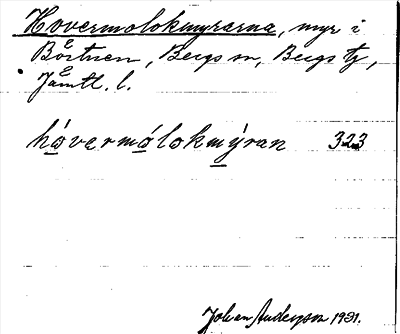 Hovermolokmyrarna, myr i
Börtnen, Bergs sn, Bergs tg,
Jämtl. l.
hóvermólokmýran 323
Johan Anderson 1931.